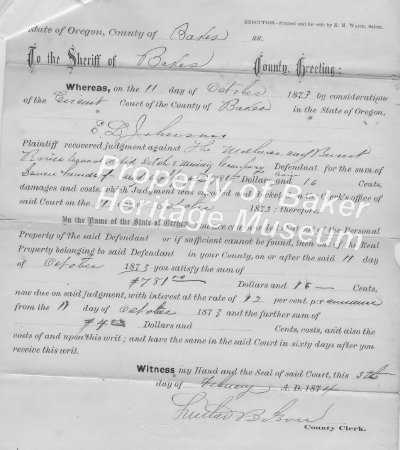 EXECUTION.-Printed and for sale by E. M. WAITE, Salem.
State of Oregon, County of Baker ss.
To the Sheriff of Baker County, Greeting:
Whereas, on the 11 day of October 1873 by consideration
of the Circuit Court of the County of Baker in the State of Oregon,
E. D. Johnson
Plaintiff recovered judgment against The and Burnt
River Ditch & Mining Company Defendant for the sum of
Seven hundred Dollars and 16 Cents,
damages and costs, which Judgment was Clerk's office of
said Court on the day of October 1873: therefore,
In the Name of the State of Oregon, the Personal
Property of the said Defendant or if sufficient cannot be found, then Real
Property belonging to said Defendant in your County, on or after the said 11 day
of October 1873 you satisfy the sum of
$781 Dollars and 16 Cents,
now due on said judgment, with interest at the rate of 12 per cent. per annum
from the 11 day of October 1873 and the further sum of
Dollars and Cents, costs, and also the
costs of and upon this writ; and have the same in the said Court in sixty days after you
receive this writ.
Witness my Hand and the Seal of said Court, this 5th
day of February A. D. 1874
Luther B. Ison
County Clerk.
Property of Baker
Heritage Museum